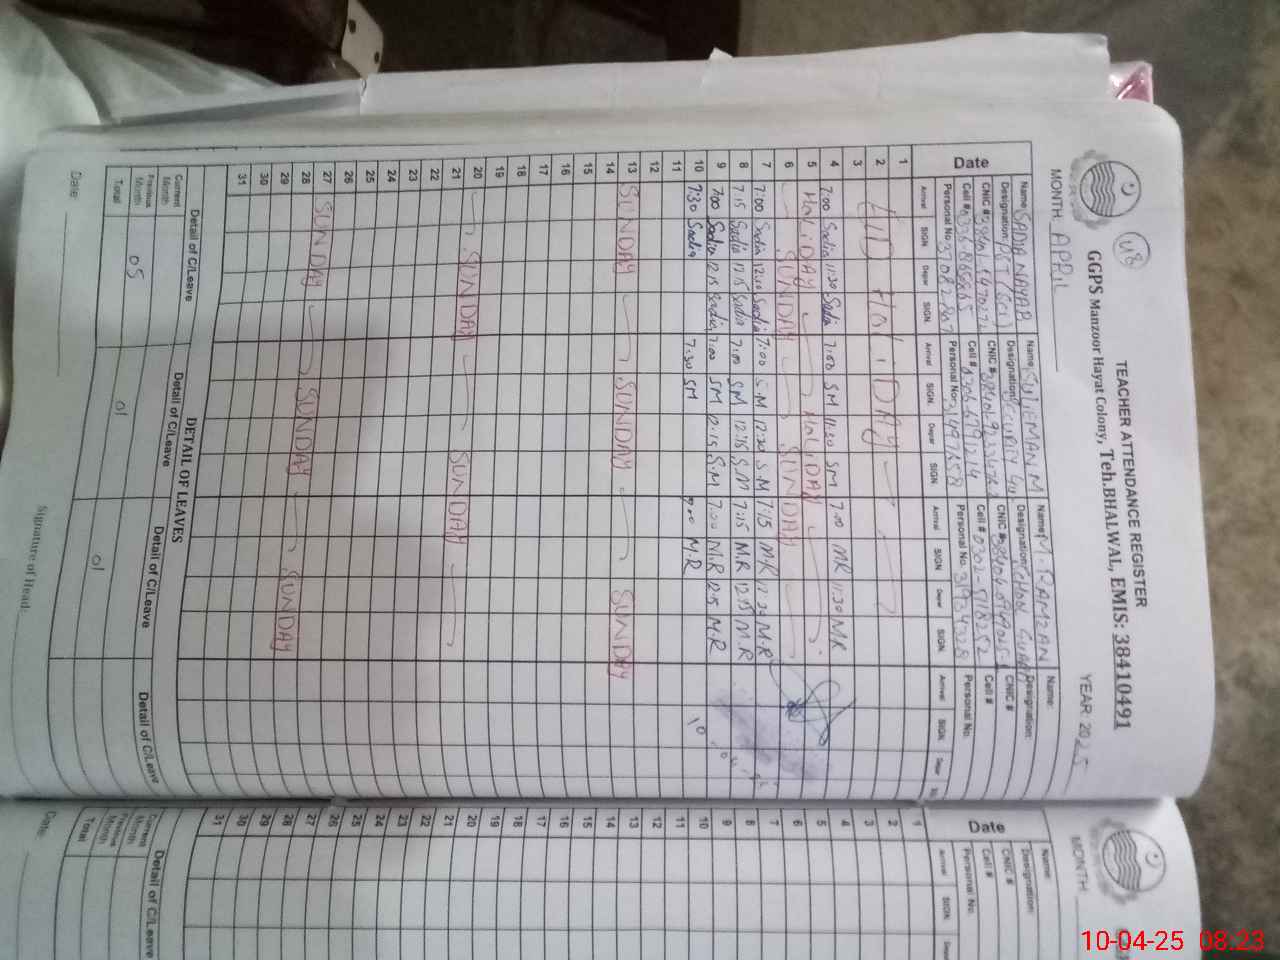 TEACHER ATTENDANCE REGISTER
48
GGPS Manzoor Hayat Colony, Teh.BHALWAL, EMIS: 38410491
MONTH: APRIL YEAR 2025
Date
Name: SADIA NAYAB Name: SULIEMAN M Name: M. RAMZAN Name:
Designation: PST (Sci) Designation: SECURITY Gu Designation: SCHOOL GUARD Designation:
CNIC # CNIC # CNIC # CNIC #
Cell # Cell # 0306 6791214 Cell # 0302-5118252 Cell #
Personal No: 37082807 Personal No: 31497858 Personal No. 31934328 Personal No.
Arrival SIGN. Depar SIGN. Arrival SIGN. Depar SIGN. Arrival SIGN. Depar SIGN. Arrival SIGN. Depar
1
2 EID HOLIDAY
3
4 7:00 Sadia 11:30 Sadia 7:00 SM 11:30 SM 7:00 MR 11:30 MR
5 HoLiDAY HoLiDAY
6 SUNDAY SUNDAY
7 7:00 Sadia 12:10 Sadia 7:00 S.M 12:30 S.M 7:15 M.R 12:30 M.R
8 7:15 Sadia 12:15 Sadia 7:00 SM 12:15 S.M 7:15 M.R 12:15 M.R
9 7:00 Sadia 12:15 Sadia 7:00 SM 12:15 S.M 7:00 M.R 12:15 M.R
10 7:30 Sadia 7:30 SM 7:00 M.R 10
11
12
13 SUNDAY SUNDAY SUNDAY
14
15
16
17
18
19
20 SUNDAY SUNDAY
21
22
23
24
25
26
27 SUNDAY SUNDAY SUNDAY
28
29
30
31
DETAIL OF LEAVES
Detail of C/Leave Detail of C/Leave Detail of C/Leave Detail of C/Leave
Current Month
Previous Month 05 01 01
Total
Date: Signature of Head:
MONTH
Date
Name:
Designation:
CNIC #
Cell #
Personal No.
Arrival SIGN. Depar
1
2
3
4
5
6
7
8
9
10
11
12
13
14
15
16
17
18
19
20
21
22
23
24
25
26
27
28
29
30
31
Detail of C/Leave
Current Month
Previous Month
Total
Date:
10-04-25 08:23